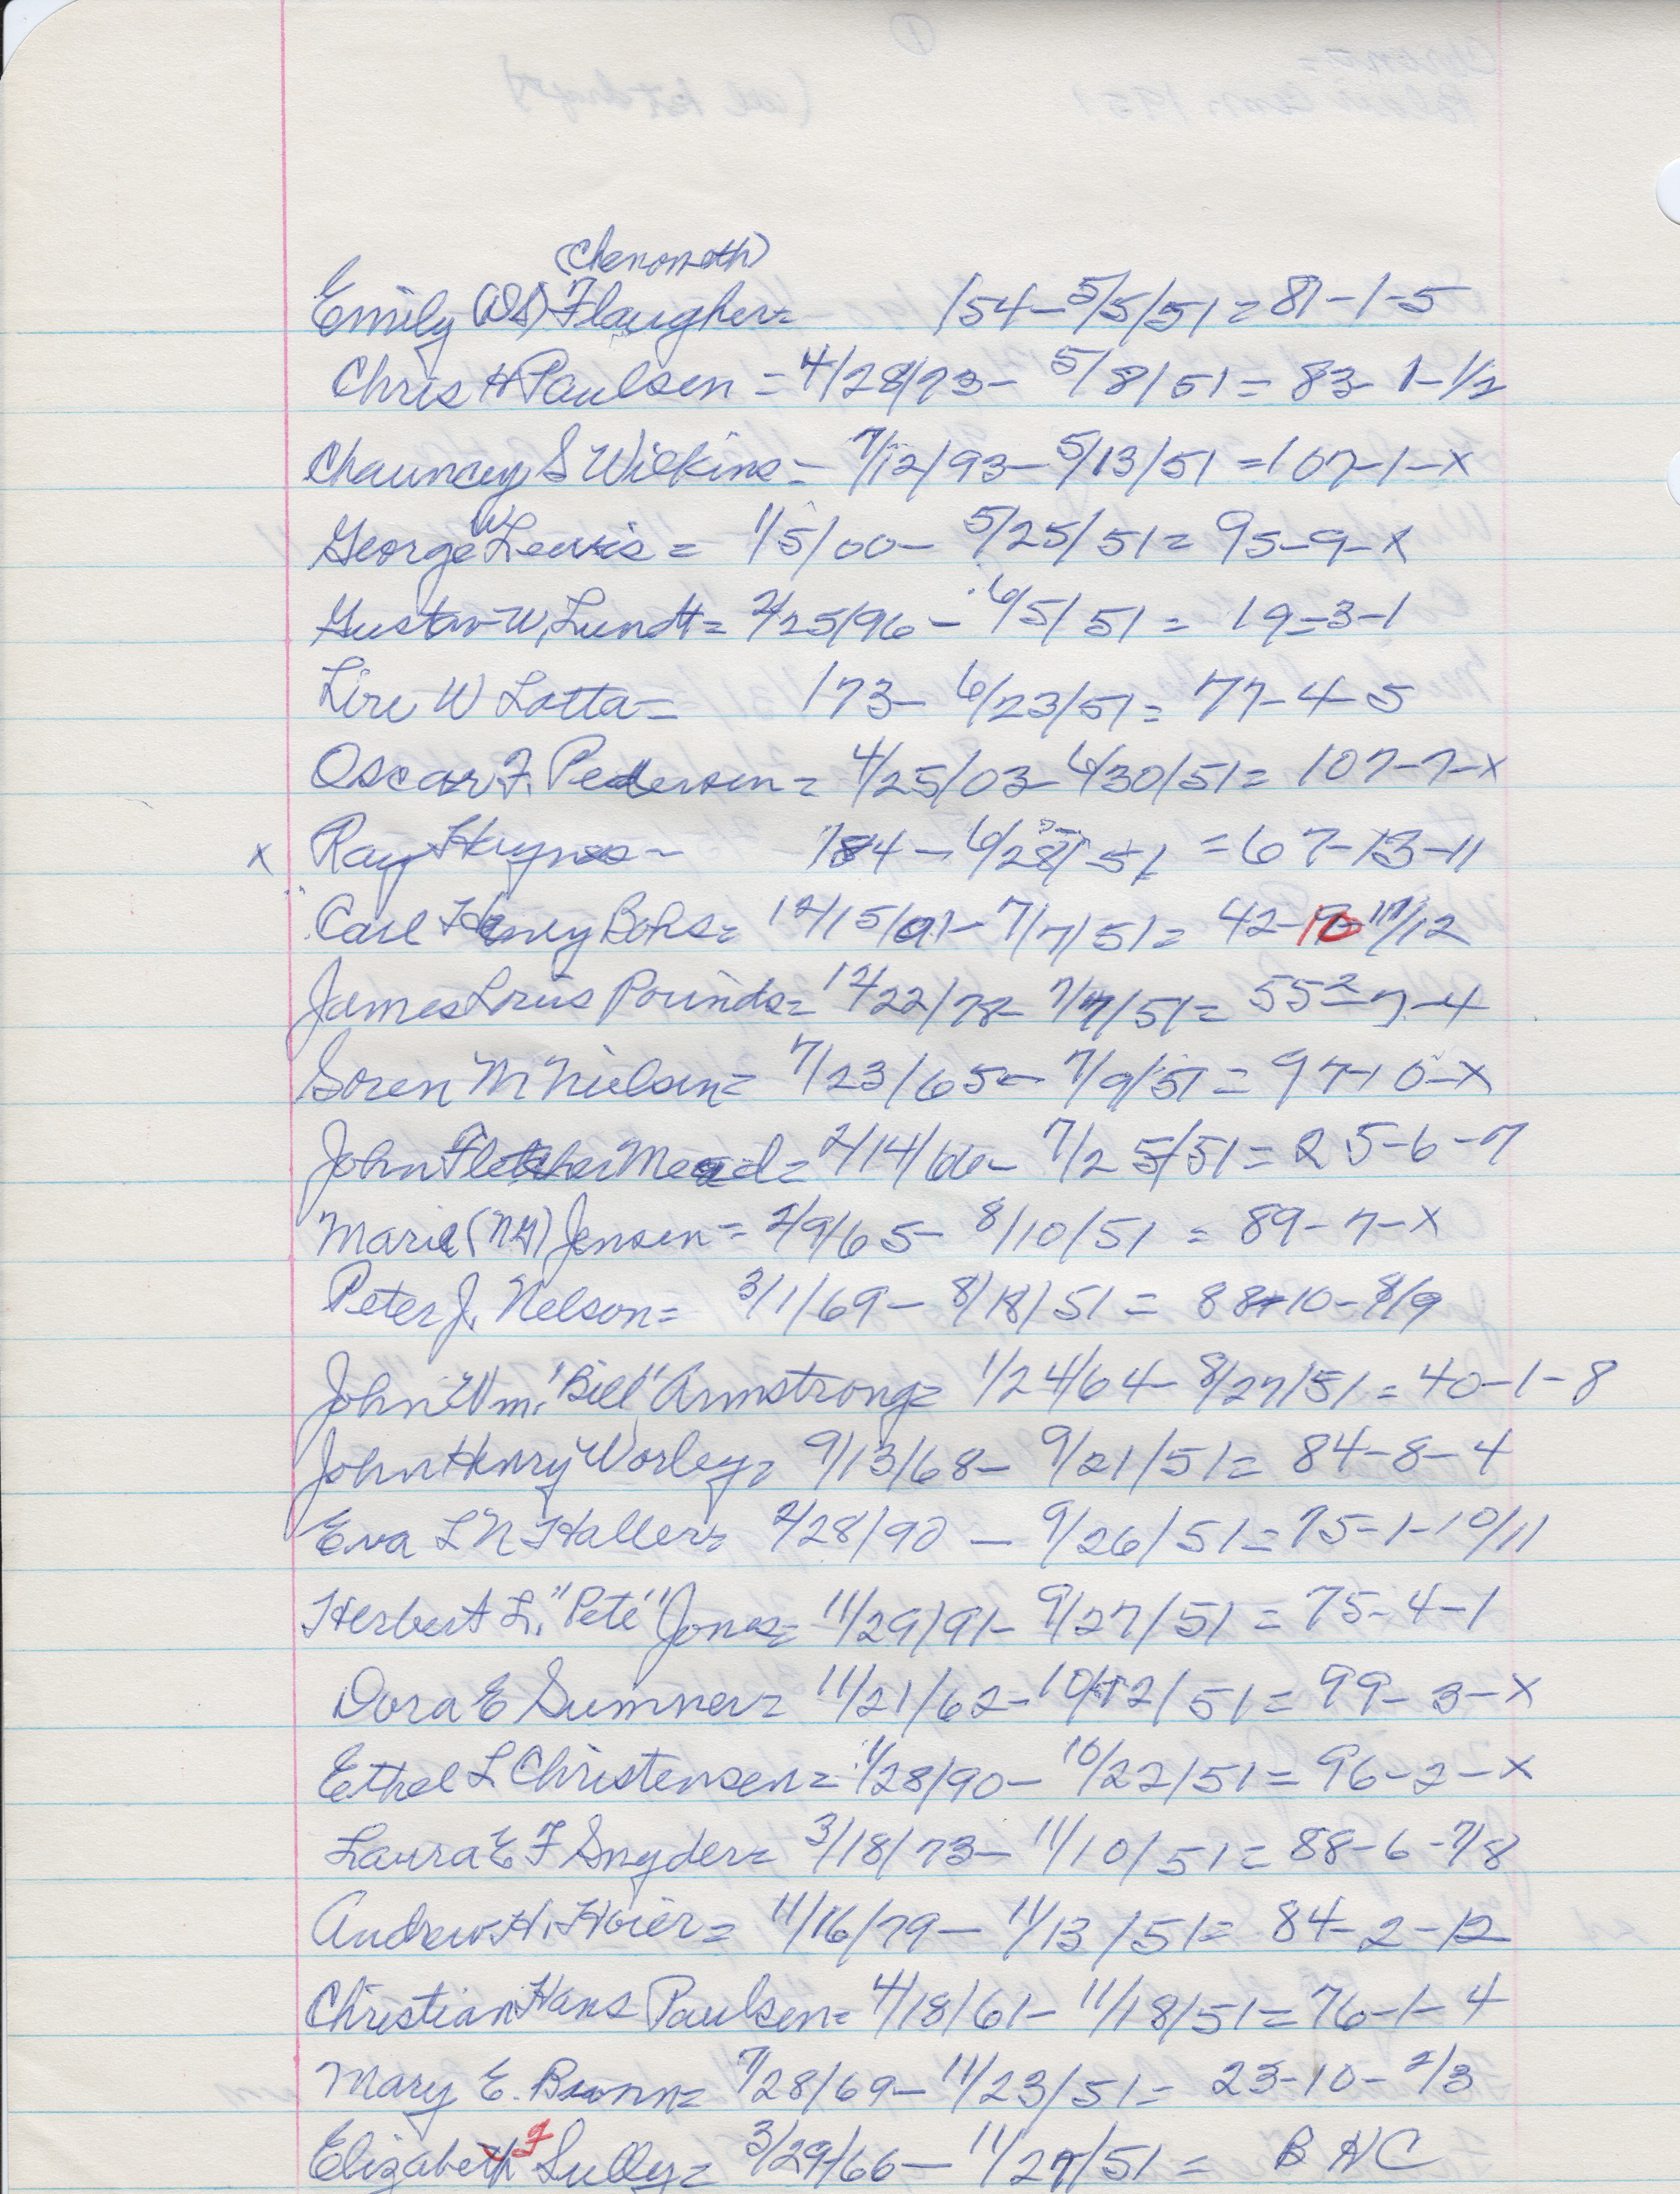 (Chenoweth)
Emily (DS) Flaugher= 154-5/5/51=81-1-5
Chris H Paulsen =4/28/73- 5/8/51= 83-1-1/2
Chauncey S Wilkins- 7/12/93-5/13/51=107-1-x
George W Lewis = 1/5/00- 5/25/51= 95-9-x
Gustav W. Lundt= 2/25/96- 6/5/51= 19-3-1
W Lotta= 173- 6/23/51= 77-4-5
Oscar F. Pedersen= 4/25/03-6/30/51= 107-7-x
x Ray Haynes- 184-6/28/51 =67-13-11
Carl Henry Bohs= 12/15/91-7/7/51= 42-10 11/12
James Pounds= 12/22/78- 7/7/51= 55-7-4
Soren M Nielsen= 7/23/65- 7/9/51= 97-10-x
John Fletcher Mead= 2/14/66- 7/25/51= 25-6-7
Marie (NH) Jensen= 2/9/65- 8/10/51 = 89-7-x
Peter J. Nelson= 3/1/69- 8/18/51= 88-10-8/9
John Wm. "Bill" Armstrong= 1/24/64-8/27/51=40-1-8
John Henry Worley= 9/13/68- 9/21/51= 84-8-4
Eva L N Haller= 2/28/90 - 9/26/51=75-1-10/11
Herbert L. "Pete" Jones= 11/29/91- 9/27/51=75-4-1
Dora E Sumner= 11/21/62-10/12/51= 99-3-x
Ethel L Christensen= 1/28/90- 10/22/51= 96-2-x
Laura E F Snyder= 3/18/73- 11/10/51= 88-6-7/8
Andrew H. Hoier= 11/16/79- 11/13/51= 84-2-12
Christian Hans Paulsen= 4/18/61- 11/18/51=76-1-4
Mary E. Brown= 7/28/69-11/23/51= 23-10-2/3
Elizabeth F Sully= 3/29/66- 11/27/51= B H C